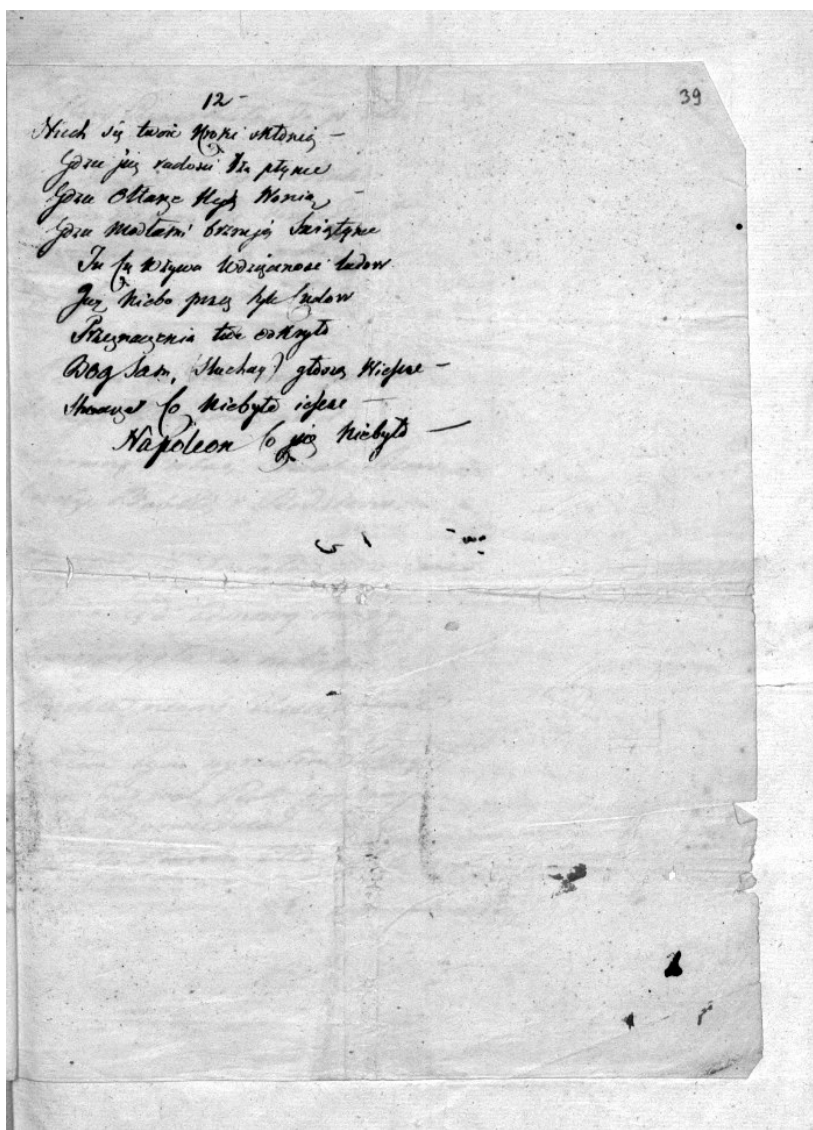 12 -
39
Niech się twoie kroki skłonią -
Gdzie już radości łza płynie
Gdzie Ołtarze Wonią -
Gdzie modłami brzmią Świątynie
Tu Cię wzywa wdzięczność ludow
Już Niebo przez tyle Cudow
Przeznaczenia twe odkryło
Bog sam, (słuchay) głosi Wieszcz -
Co Niebyło ieszcze -
Napoleon Co już Niebyło -